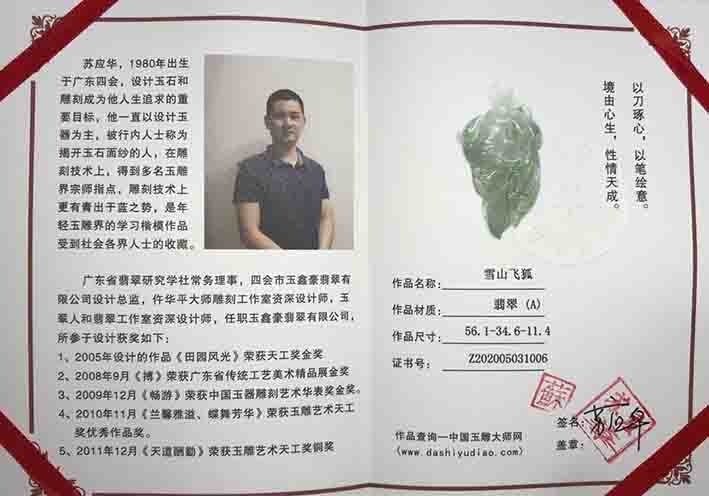 苏应华，1980年出生
于广东四会，设计玉石和
雕刻成为他人生追求的重
要目标，他一直以设计玉
器为主，被行内人士称为
揭开玉石面纱的人，在雕
刻技术上，得到多名玉雕
界宗师指点，雕刻技术上
更有青出于蓝之势，是年
轻玉雕界的学习楷模作品
受到社会各界人士的收藏。
广东省翡翠研究学社常务理事，四会市玉鑫豪翡翠有
限公司设计总监，仵华平大师雕刻工作室资深设计师，玉
翠人和翡翠工作室资深设计师，任职玉鑫豪翡翠有限公司，
所参于设计获奖如下：
1、2005年设计的作品《田园风光》荣获天工奖金奖
2、2008年9月《博》荣获广东省传统工艺美术精品展金奖
3、2009年12月《畅游》荣获中国玉器雕刻艺术华表奖金奖。
4、2010年11月《兰馨雅溢、蝶舞芳华》荣获玉雕艺术天工
奖优秀作品奖。
5、2011年12月《天道酬勤》荣获玉雕艺术天工奖铜奖
以刀琢心，以笔绘意。
境由心生，性情天成。
作品名称：雪山飞狐
作品材质：翡翠 (A)
作品尺寸：56.1-34.6-11.4
证书号：Z202005031006
作品查询—中国玉雕大师网
(www.dashiyudiao.com)
签名：苏应华
盖章：